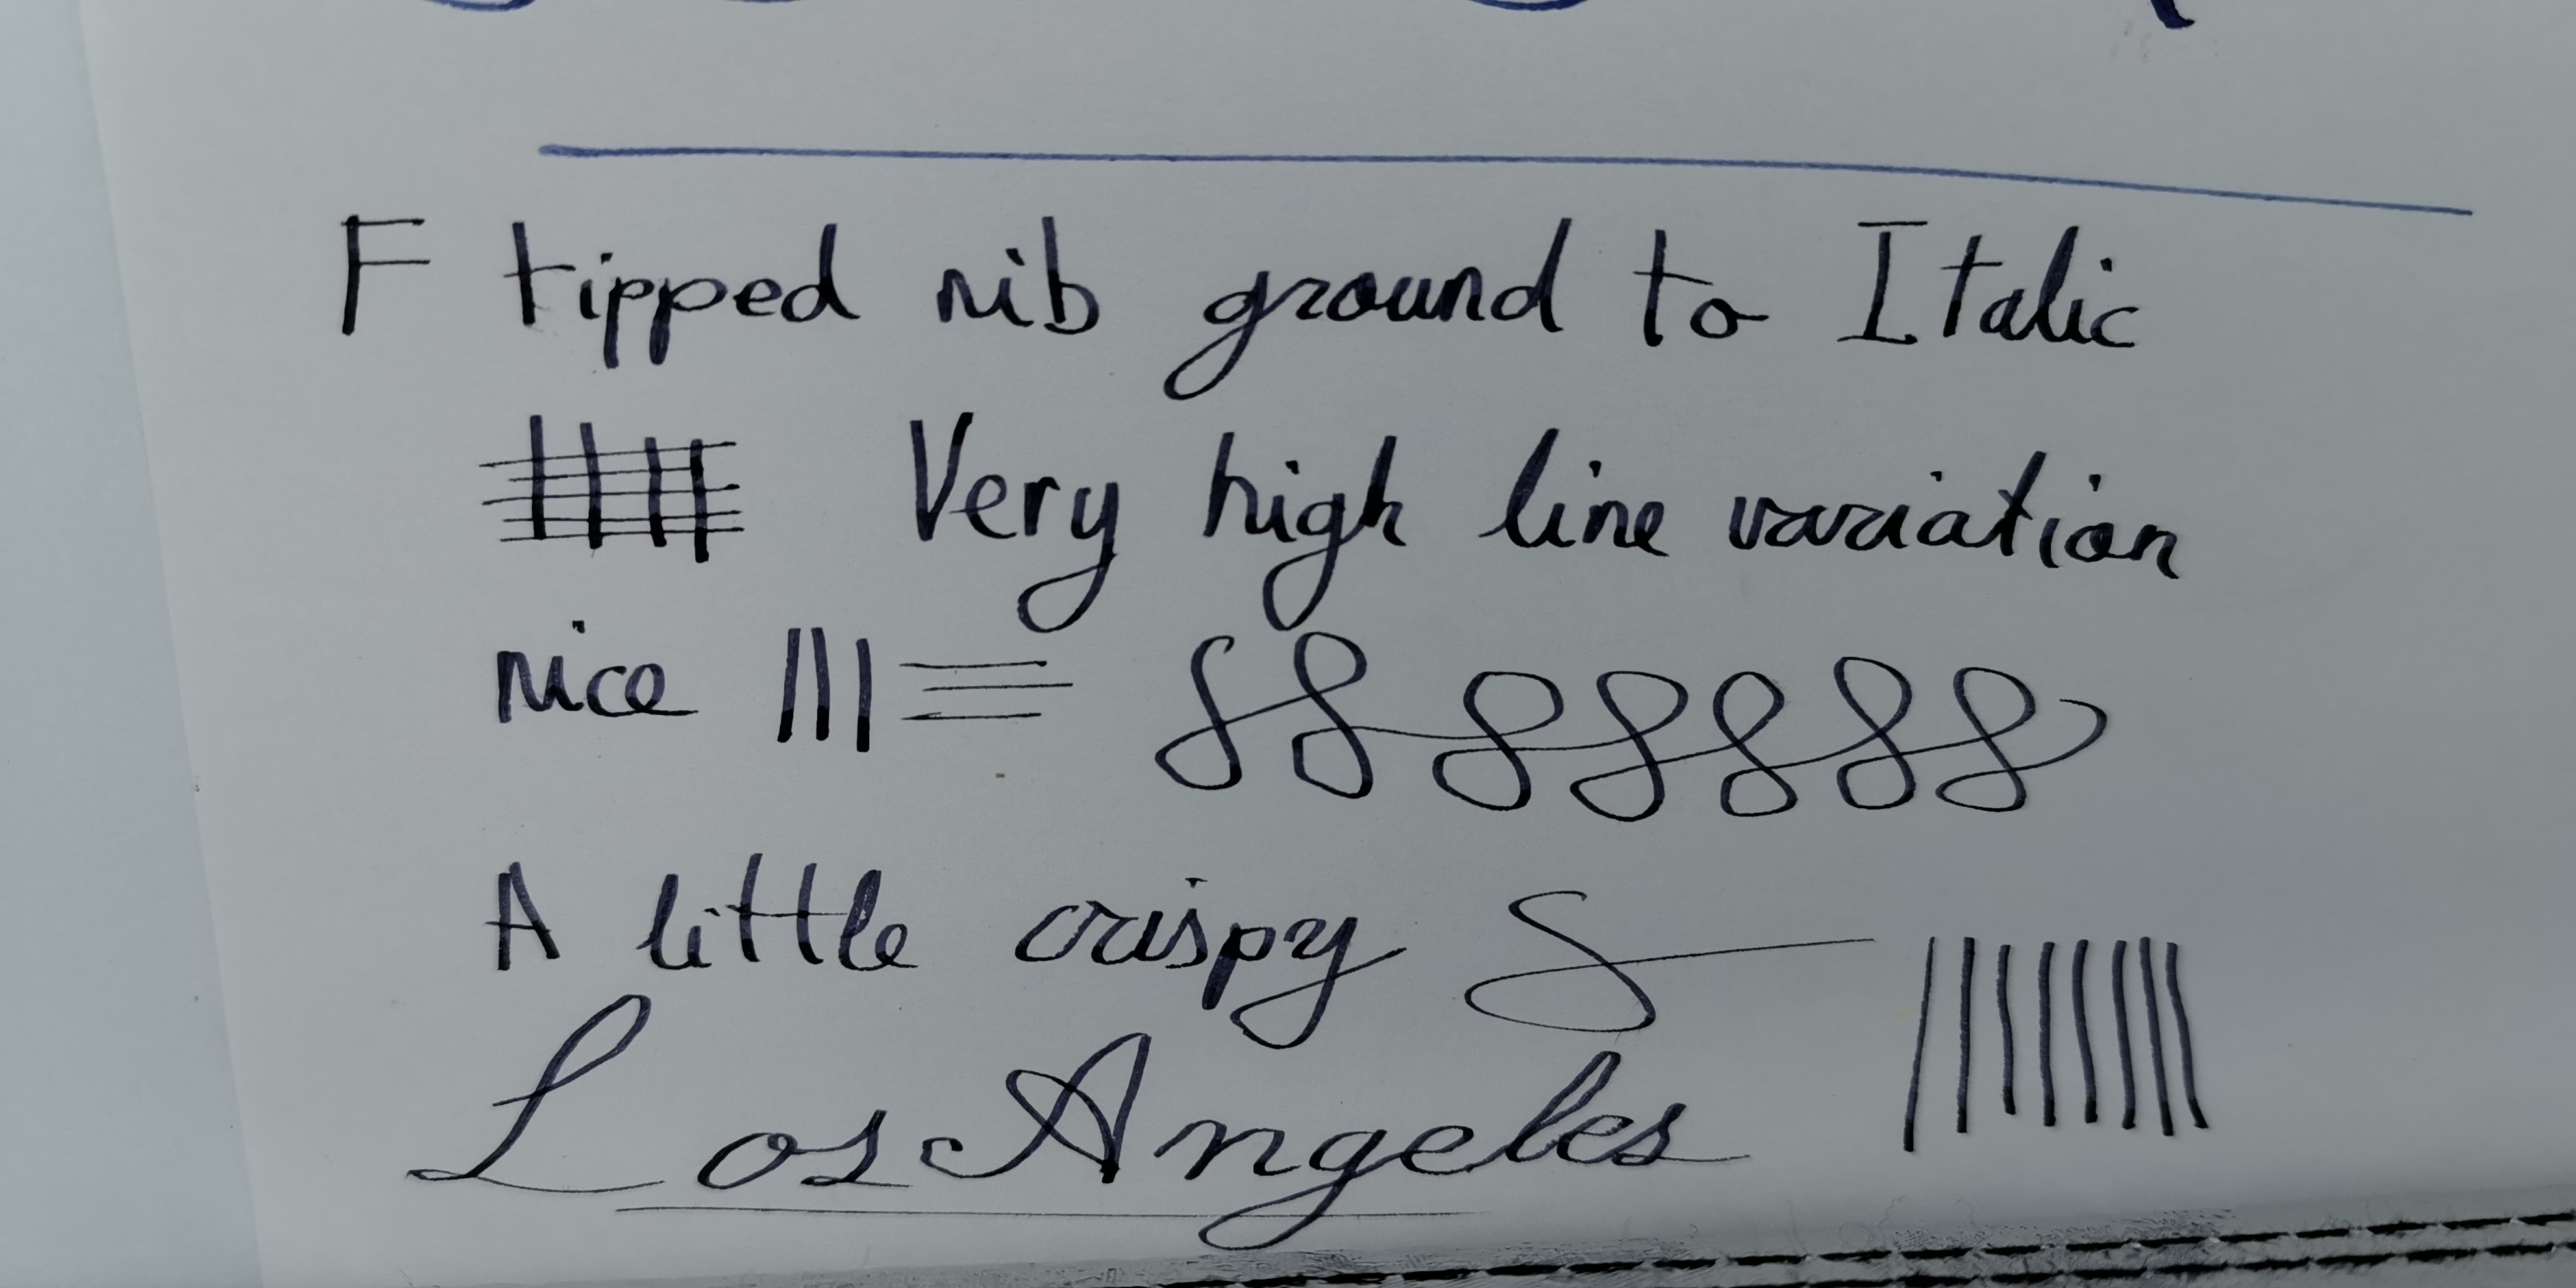 F tipped nib ground to Italic
Very high line variation
nice
A little crispy
Los Angeles